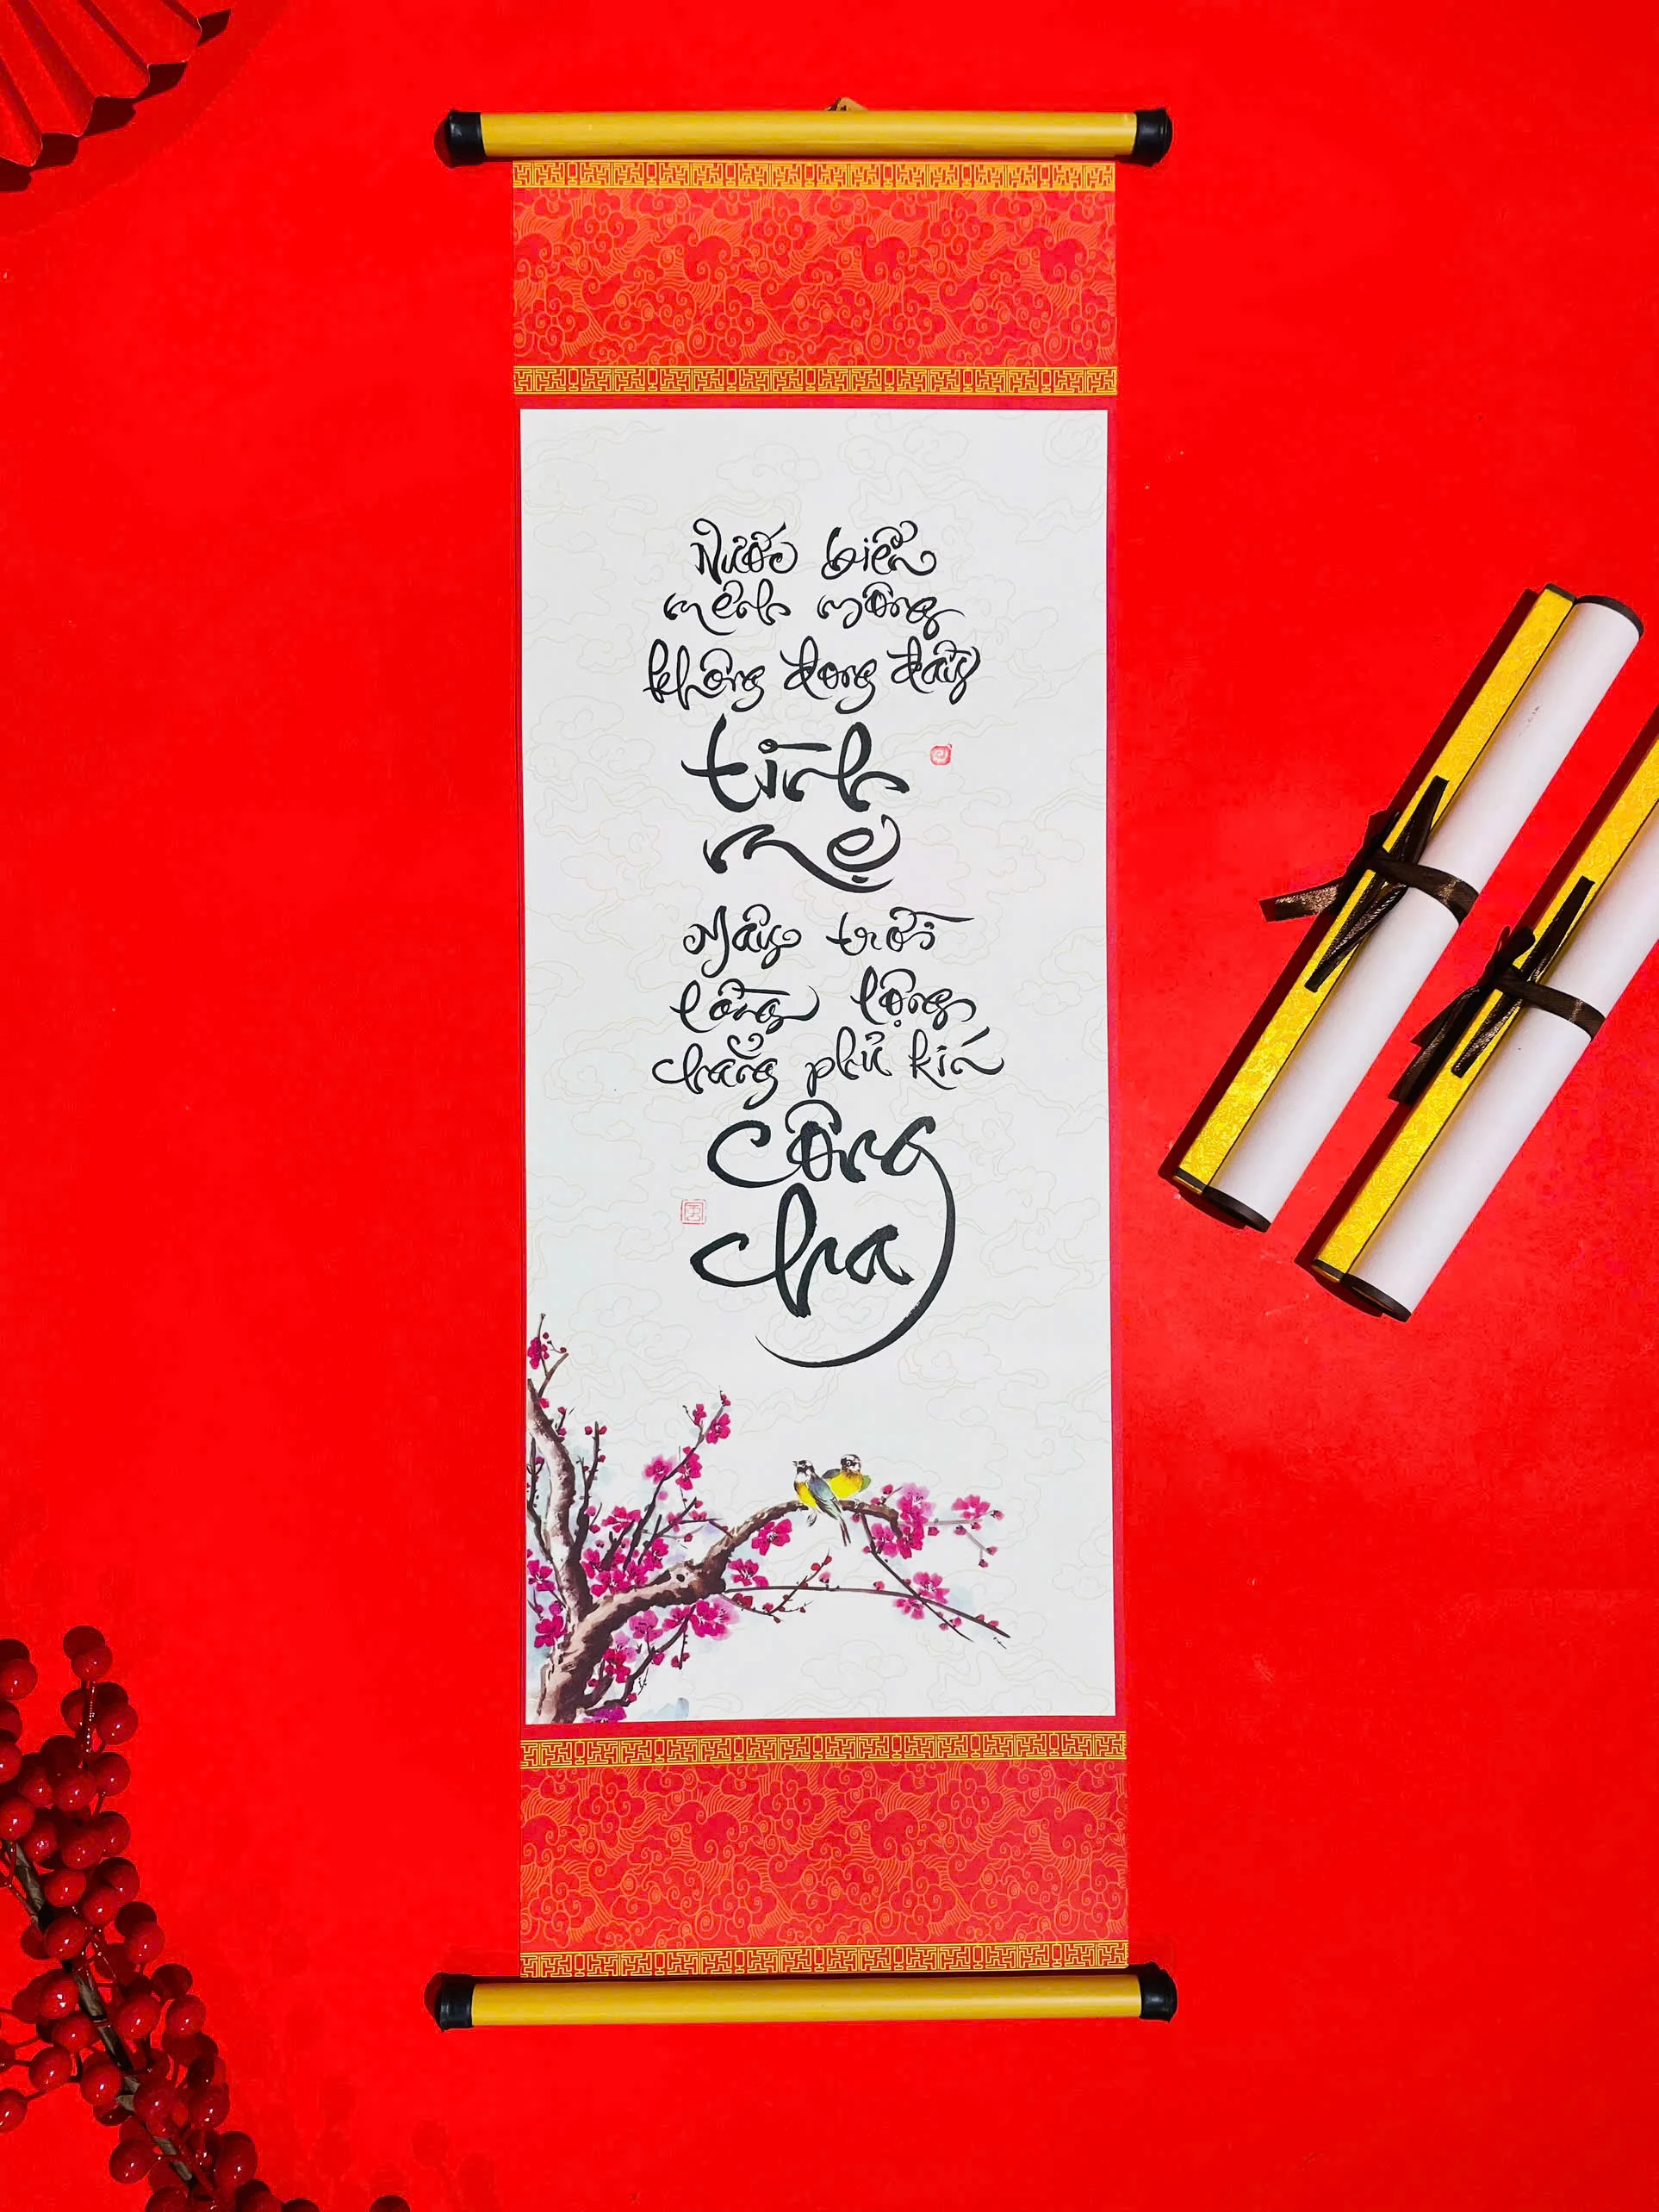 Nước biển
mênh mông
không đong đầy
tình
mẹ
Mây trời
lồng lộng
chẳng phủ kín
công
cha